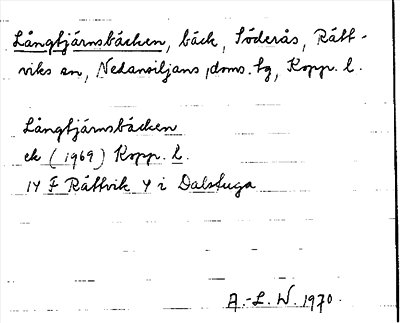 Långtjärnsbäcken, bäck, Söderås, Rätt-
viks sn, Nedansiljans doms. tg, Kopp. l.
Långtjärnsbäcken
ek (1969) Kopp. l.
14 F Rättvik 4 i Dalstuga
A.-L. W. 1970.